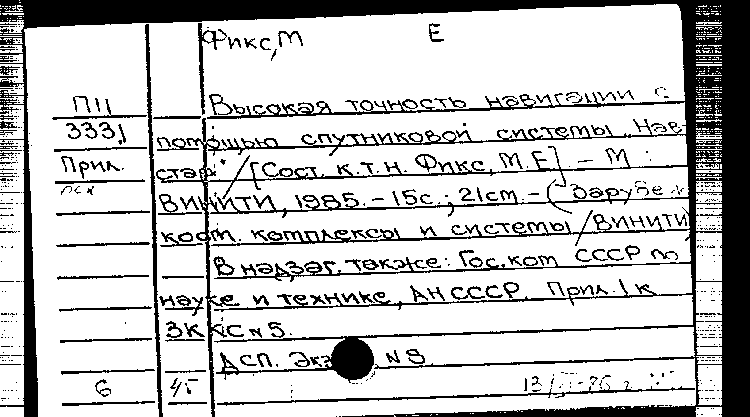 Фикс, М Е
П11 Высокая точность навигации с
333, помощью спутниковой системы Нав-
Прил. стар / [Сост. к.т.н. Фикс, М. Е] – М :
ВИНИТИ, 1985. – 15с.; 21ст. – (Зарубеж
косм. комплексы и системы / ВИНИТИ)
В надзаг. также: Гос. ком СССР по
науке и технике, АН СССР. Прил. 1 к
ЗККС N5.
ДСП. Экз N 8
6 45